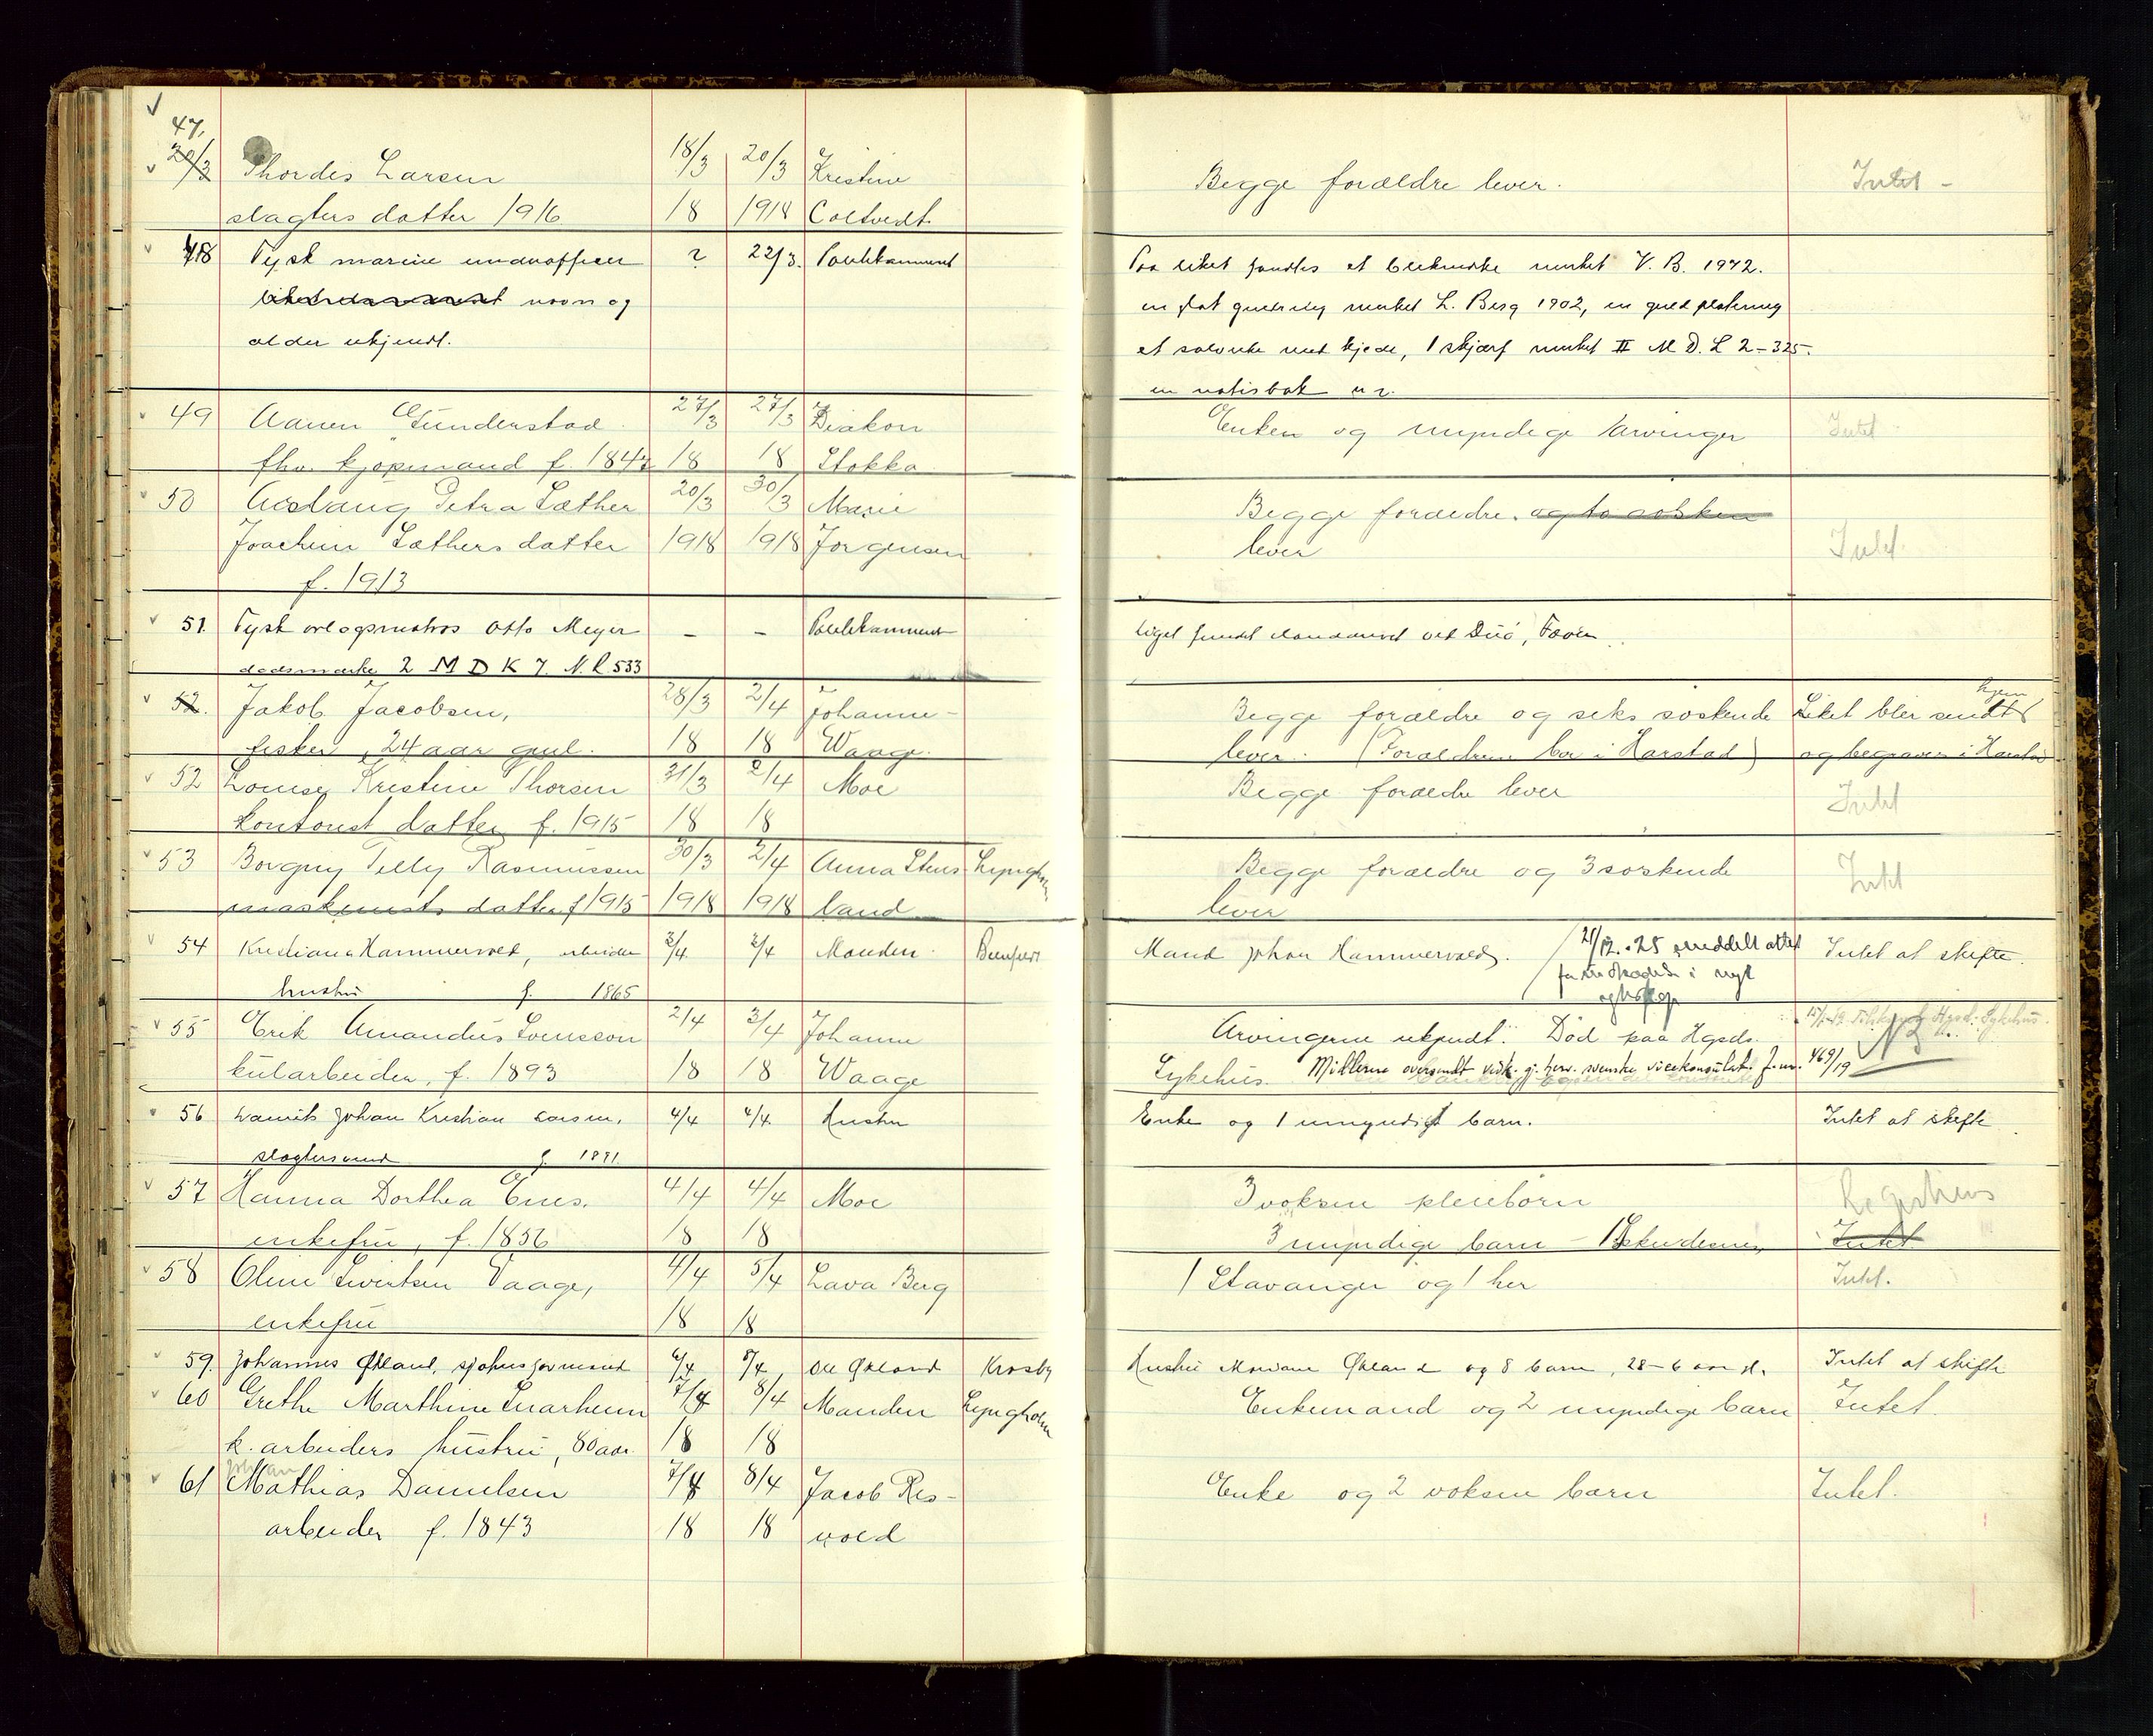 47.
20/3 Thordis Larsen 18/3 20/3 Kristine Begge forældre lever. Intet -
slagters datter 1916 18 1918 Coltvedt.
48 Tysk marine underofficer ? 22/3. Politikammeret Paa liket fandtes et merket V. B. 1942.
navn og en flat merket L. Berg 1902, en
alder ukjendt. et med kjede, 1 skjærf merket II M D. L 2 - 325.
en notisbok
49 Gunderstad 27/3 27/3 Diakon Enken og myndige arvinger Intet
fhv. kjøpmand f. 184 18 18 Stokka
50 Aslaug Petra Sæther 20/3 30/3 Marie Begge forældre. og to søsken
Joachim Sæthers datter 1918 1918 Jørgensen lever Intet.
f. 1913
51. Tysk Otto Meyer - - Politikammeret Liget fundet
dødsmærke 2 M D K 7. N. R. 533
52. Jakob Jacobsen, 28/3 2/4 Johanne Begge forældre og seks søskende Liket blir sendt hjem
fisker, 24 aar gml. 18 18 Waage. lever. (Forældrene bor i Harstad) og begraves i Harstad
52 Louise Kristine Thorsen 31/3 2/4 Moe Begge forældre lever Intet
kontorist datter f. 1915 18 18
53 Borgny Telly Rasmussen 30/3 2/4 Anna Stens Lyngholm Begge forældre og 3 søskende Intet
maskinists datter f 1915 1918 1918 land lever
54 Kristiana Hammervold, arbeider 2/4 2/4 Manden. Mand Johan Hammervold. 21/12.-25 meddelt attest Intet at skifte.
hustru f. 1865
55 Erik Amandus Svensson 2/4 3/4 Johanne Arvingerne ukjendt. Død paa Hgsds.
kularbeider, f. 1893 18 18 Waage Sykehus. Midlerne oversendt herv. svenske vicekonsulat. J. nr. 469/19
56 Johan Kristian Larsen, 4/4 4/4 Hustru Enke og 1 umyndigt barn. Intet at skifte
slagtersvend f. 1891.
57 Hanna Dorthea Enes. 4/4 4/4 Moe 3 voksne pleiebørn Registreres
enkefru, f. 1856 18 18 3 myndige barn - 1 Skudesnes, Intet
58 Oline Sivertsen Vaage, 4/4 5/4 Lava Berg 1 Stavanger og 1 her Intet.
enkefru 18 18
59. Johannes Økland, 6/4 8/4 Ole Økland Krosby Hustru Økland og 8 barn, 28-6 aar gl. Intet at skifte
60 Grethe Marthine Snarheim 7/4 8/4 Manden Lyngholm Enkemand og 2 myndige barn Intet.
k. arbeiders hustru, 80 aar. 18 18
Johan
61 Mathias Danielsen 7/4 8/4 Jacob Res- Enke og 2 voksne barn Intet.
arbeider f. 1843 18 18 vold